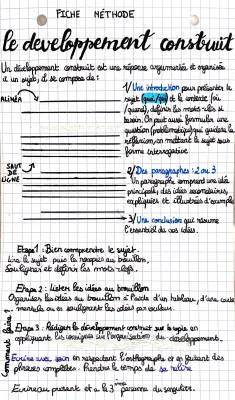 FICHE MÉTHODE
le developpement construit
Un développement construit est une réponse argumentée et organisée
à un sujet, il se compose de :
ALINÉA
1/ Une introduction pour présenter le
sujet (quoi/qui) et le contexte (où
/quand), définir les mots-clés si
besoin. On peut aussi formuler une
question (problématique) qui guidera la
réflexion, en mettant le sujet sous
forme interrogative
SAUT
DE
LIGNE
2/ Des paragraphes : 2 ou 3
Un paragraphe comprend une idée
principale, des idées secondaires,
expliquées et illustrées d'exemple
3/ Une conclusion qui résume
l'essentiel de vos idées.
Comment faire ?
Etape 1 : Bien comprendre le sujet.
Lire le sujet puis le recopier au brouillon.
Souligner et définir les mots-clefs.
Etape 2 : Lister les idées au brouillon
Organiser les idées au brouillon à l'aide d'un tableau, d'une carte
mentale ou en soulignant les idées par couleurs.
Etape 3 : Rédiger le développement construit sur la copie en
appliquant les consignes sur l'organisation du développement.
Ecrire avec soin en respectant l'orthographe et en faisant des
phrases complètes. Prendre le temps de se relire
Ecrire au présent et à la 3ème personne du singulier.